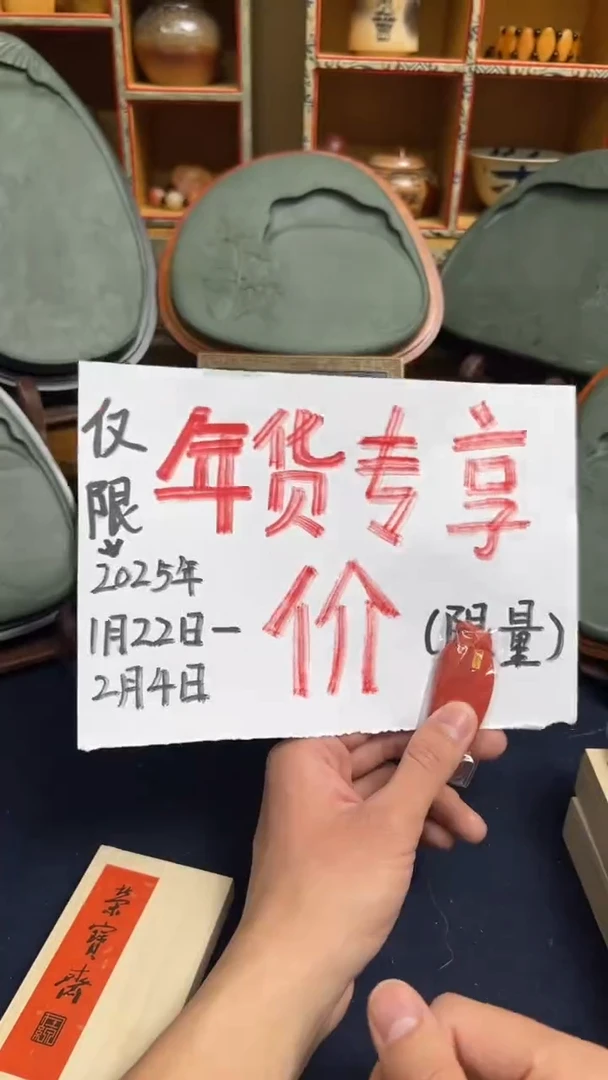 仅限
2025年
1月22日-
2月4日
年货专享
价
(限量)
荣宝斋